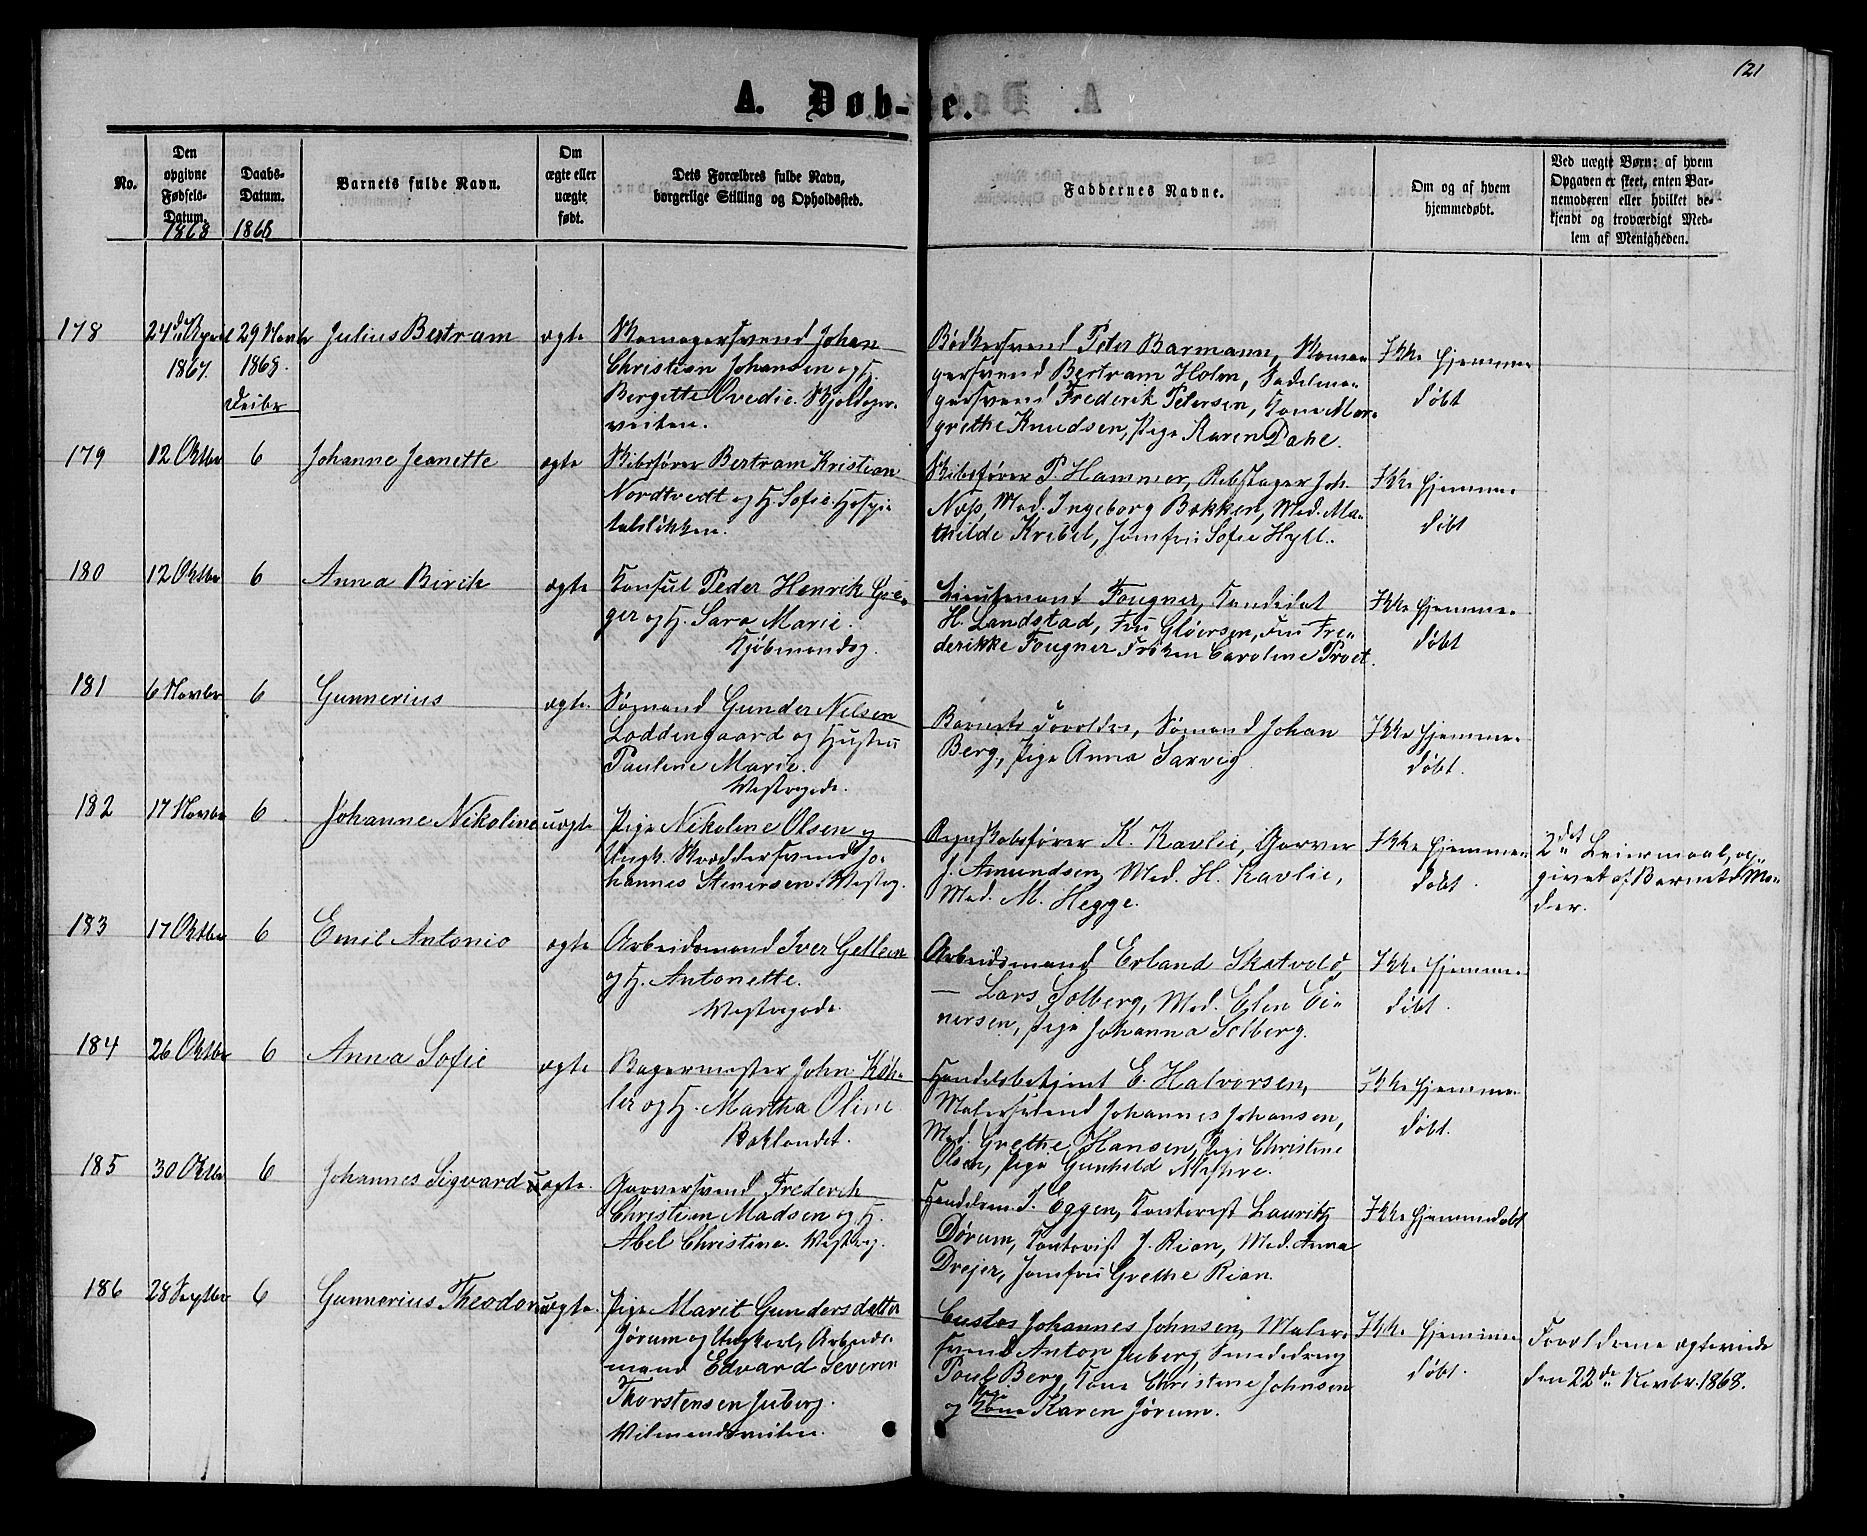 121
A. Døb-te.
No.
Den opgivne Fødsels-Datum. 1868
Daabs-Datum. 1868
Barnets fulde Navn.
Om ægte eller uægte født.
Dets Forældres fulde Navn, borgerlige Stilling og Opholdssted.
Faddernes Navne.
Om og af hvem hjemmedøbt.
Ved uægte Børn: af hvem
Opgaven er skeet, enten Bar-
nemoderen eller hvilket be-
kjendt og troværdigt Med-
lem af Menigheden.
178
24de April
1867.
29 Novbr
1868.
Decbr
Julius Bertram
ægte
Skomagersvend Johan
Christian Johansen og H.
Bergitte Ovedie. Skjoldager-
veiten.
Bødkersvend Peter Barmann, Skoma-
gersvend Bertram Holm, Sadelma-
gersvend Frederik Petersen, Kone Mar-
grethe Knudsen, Pige Karen Dahl.
Ikke hjemme
døbt
179
12 Oktbr
6
Johanne Jeanette
ægte
Skibsfører Bertram Kristian
Nordtvedt og H. Sofie. Hospi-
talsløkken.
Skibsfører P. Hammer, Rebslager Joh.
Næss, Mad. Ingeborg Bakken, Mad. Ma-
thilde Krebel, Jomfru Sofie Hyll.
Ikke hjemme-
døbt
180
12 Oktbr
6
Anna Birch
ægte
Konsul Peder Henrik Grø-
ger og H. Sara Marie.
Kjøbmandsg.
Lieutenant Fougner, Kandidat
H. Landstad, Fru Gløersen, Fru Fre-
derikke Fougner Frøken Caroline Proet.
Ikke hjemme-
døbt
181
6 Novbr
6
Gunnerius
ægte.
Sømand Gunder Nilsen
Loddengaard og Hustru
Pauline Marie.
Westregade.
Barnets Forældre, Sømand Johan
Berg, Pige Anna Sarvig
Ikke hjemme-
døbt.
182
17 Novbr
6
Johanne Nikoline
uægte
Pige Nikoline Olsen og
Ungk. Skræddersvend Jo-
hannes Stenersen. Westreg.
Regnskabsfører K. Kavlie, Garver
J. Amundsen, Mad. H. Kavlie,
Mad. M. Hegge.
Ikke hjemme
døbt.
2det Leiermaal, op-
givet af Barnets Mo-
der.
183
17 Oktbr
6
Emil Antonio
ægte
Arbeidsmand Iver Gellein
og H. Antonette.
Westregade.
Arbeidsmand Erland Skatvold,
— Lars Solberg, Mad. Elen Ei-
nersen, Pige Johanna Solberg.
Ikke hjemme-
døbt.
184
26 Oktbr
6
Anna Sofie
ægte
Bagermester John Køh-
ler og H. Martha Oline
Baklandet.
Handelsbetjent E. Halvorsen,
Malersvend Johannes Johansen,
Mad. Grethe Hansen, Pige Christine
Olsen, Pige Gunhild Myhre.
Ikke hjemme-
døbt.
185
30 Oktbr
6
Johannes Sigvard
ægte.
Garversvend Frederik
Christian Madsen og H.
Abel Christine. Westreg.
Handelsm. J. Eggen, Kontorist Lauritz
Dørum, Kontorist J. Rian, Mad. Anna
Drejer, Jomfru Grethe Rian.
Ikke hjemmedøbt
186
28 Septbr
6
Gunnerius Theodor
uægte.
Pige Marit Gundersdatter
Jørum og Ungkarl, Arbeids-
mand Edvard Severin
Thorstensen Juberg.
Wilmandsveiten.
Custos Johannes Johnsen, Maler-
svend Anton Juberg, Smededreng
Poul Berg, Kone Christine Johnsen
og Kone Pige Karen Jørum.
Ikke hjemme
døbt.
Forældrene ægteviede
den 22de Novbr. 1868.